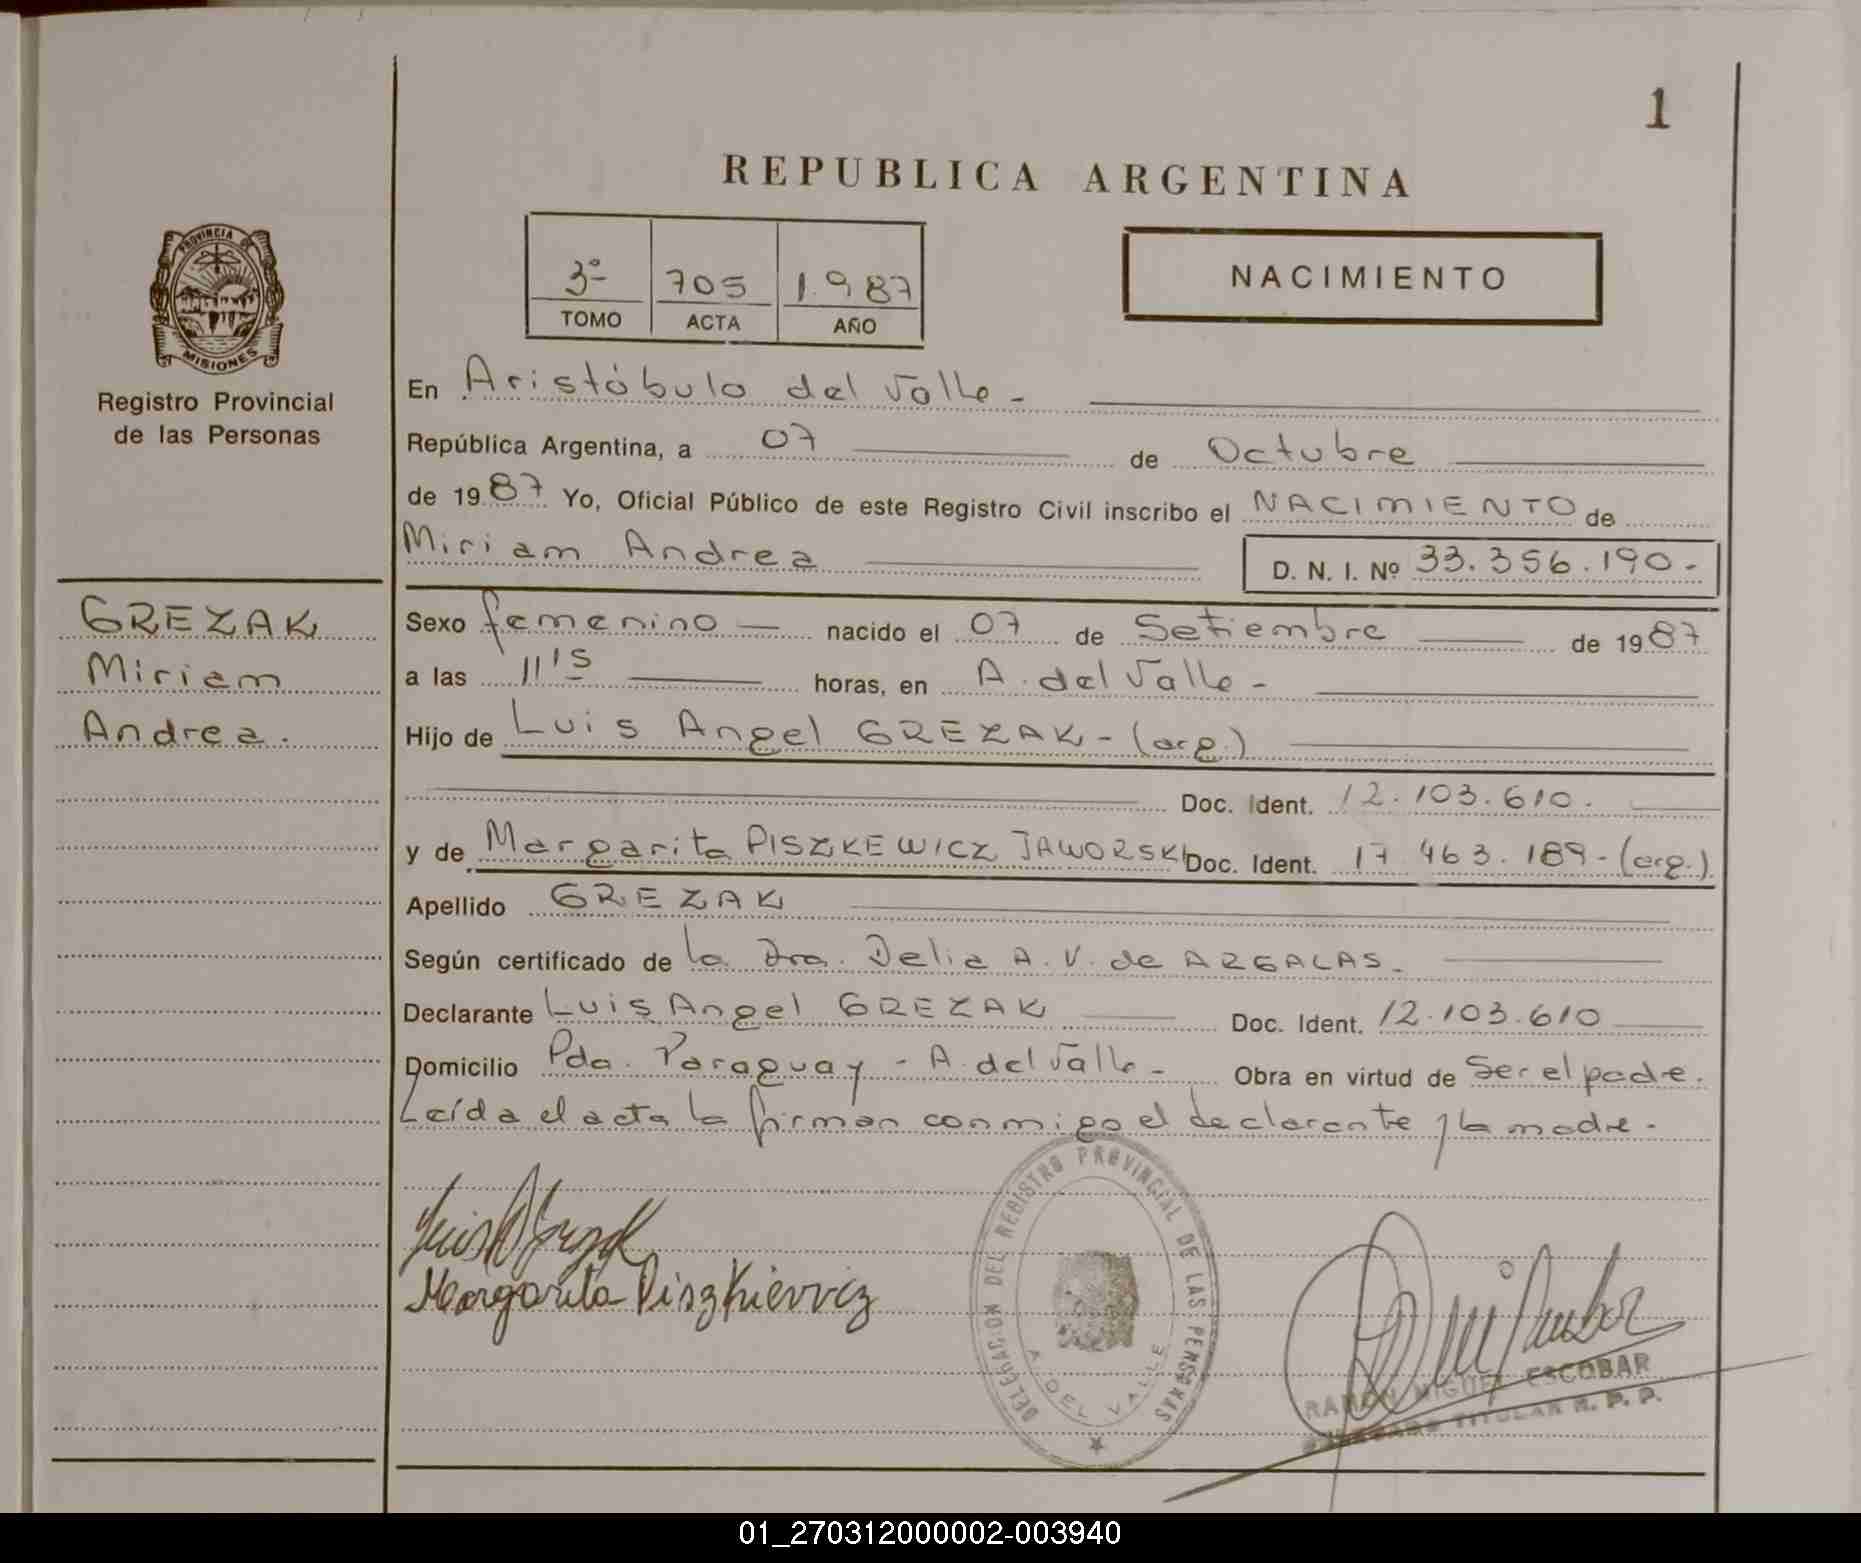 1
REPUBLICA ARGENTINA
PROVINCIA DE
MISIONES
Registro Provincial
de las Personas
3º 705 1.987
TOMO ACTA AÑO
NACIMIENTO
En Aristóbulo del Valle -
República Argentina, a 07 de Octubre
de 1987 Yo, Oficial Público de este Registro Civil inscribo el NACIMIENTO de
Miriam Andrea D. N. I. Nº 33.356.190-
GREZAK
Miriam
Andrea.
Sexo femenino nacido el 07 de Setiembre de 1987
a las 11'15 horas, en A. del Valle -
Hijo de Luis Angel GREZAK - (arg.)
Doc. Ident. 12.103.610.
y de Margarita PISZKEWICZ JAWORSKI Doc. Ident. 17.463.189- (arg.)
Apellido GREZAK
Según certificado de la Dra. Delia A. V. de ARGALAS.
Declarante Luis Angel GREZAK Doc. Ident. 12.103.610
Domicilio Pda. Paraguay - A. del Valle - Obra en virtud de Ser el padre.
Leída el acta la firman conmigo el declarante y la madre.
Margarita Piszkiewicz
DELEGACION DEL REGISTRO PROVINCIAL DE LAS PERSONAS
A. DEL VALLE
RAMON MIGUEL ESCOBAR
DELEGADO TITULAR R. P. P.
01_270312000002-003940